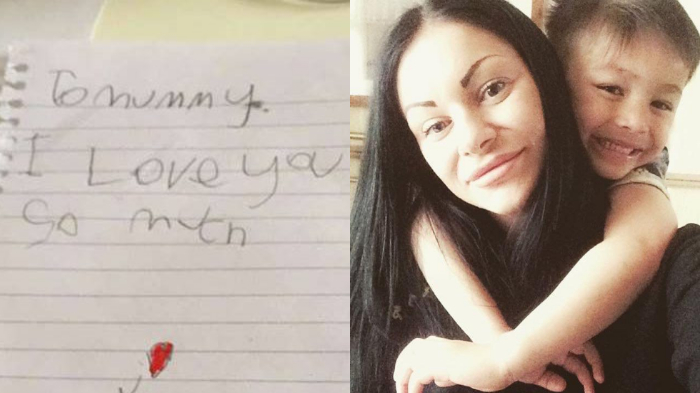 To mummy.
I Love you
So mtn